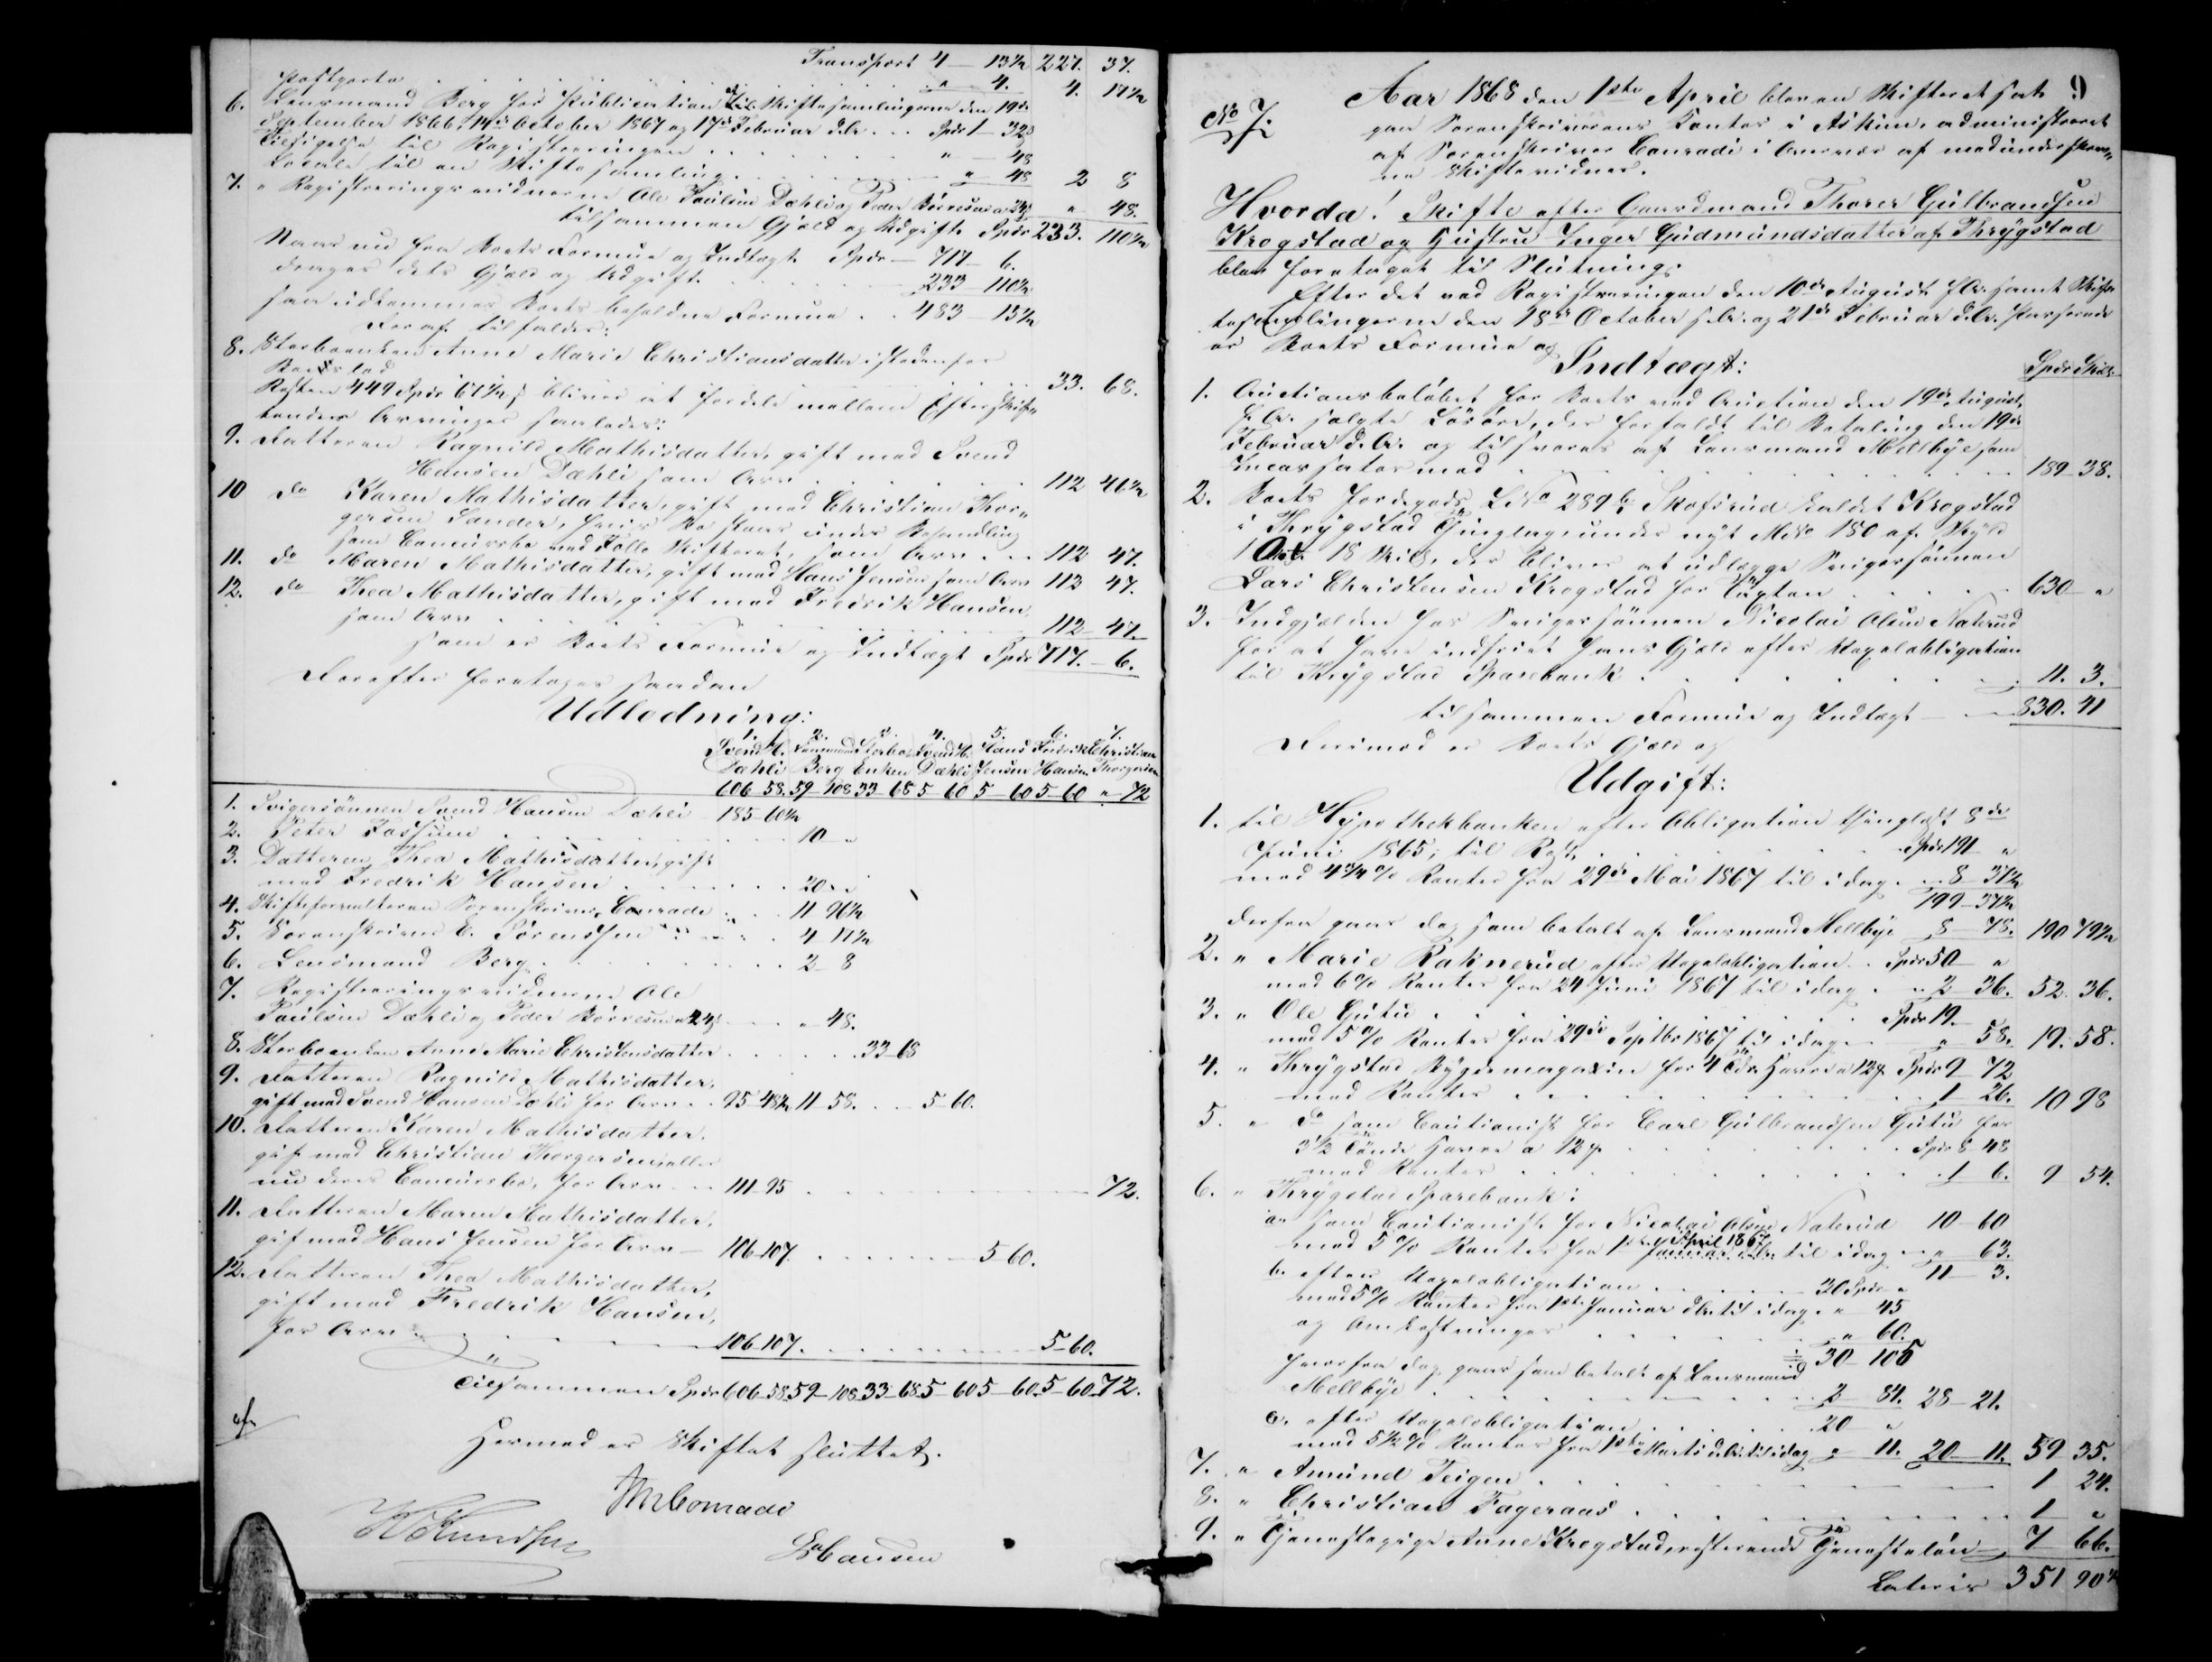 Transport 4 — 13½ 227. 37.
Postporto . . . . . " 4. 4. 17½
6. Lensmand Berg for Publication af Skiftesamlingerne den 19de
September 1866, 14de October 1867 og 17de Februar d.Ar. . . Spdr 1 — 32
Tilsigelse til Registreringen . . . . " — 48
Locale til en Skiftesamling . . . . " 48 2 8
7. " Registreringsvidnerne Ole Paulsen Dæhli og Peder Börresen a 24 " 48.
tilsammen Gjæld og Udgift Spdr 233. 110½
Naar nu fra Boets Formue og Indtægt Spdr — 717 — 6.
drages dets Gjæld og Udgift . . . . 233 — 110½
saa udkommer Boets beholdne Formue . . 483 — 15½
Heraf tilfalder:
8. Sterboenken Anne Marie Christiansdatter istedenfor
Boeslod . . . . 33. 68.
Resten 449 Spdr 67½ bliver at fordele mellem Efterskif-
tendes Arvinger saaledes:
9. Datteren Ragnild Mathisdatter, gift med Svend
Hansen Dæhli som Arv . . . . 112 46½
10 do Karen Mathisdatter, gift med Christian Thor-
gersen Sander, hvis Bo staar under Behandling
som Concursbo ved Follo Skifteret, som Arv . . . 112 47.
11. do Maren Mathisdatter, gift med Hans Jensen som Arv 112 47.
12. do Thea Mathisdatter, gift med Fredrik Hansen,
som Arv . . . . 112 — 47.
som er Boets Formue og Indtægt Spdr 717. — 6.
Derefter foretages saadan
Udlodning:
1. 2. 3. 4. 5. 6. 7.
Svend H. Lensmand Sterbo- Svend H. Hans Fredrik Christian
Dæhli Berg Enken Dæhli Jensen Hansen Thorgersen
606 58. 59 — 108 33 — 68 5 60 5 — 60 5 — 60 " — 72
1. Svigersönnen Svend Hansen Dæhli — 185 — 60½
2. Peter Fossum . . . . 10 — "
3. Datteren Thea Mathisdatter, gift
med Fredrik Hansen . . . . 20 — "
4. Skifteforvalteren Sorenskriver Conradi . . . 11 90½
5. Sorenskriver C. Sörenssen . . . 4 — 17½
6. Lensmand Berg . . . . 2 — 8
7. Registreringsvidnerne Ole
Paulsen Dæhli og Peder Börresen a 24 . . " — 48.
8. Sterboenken Anne Marie Christensdatter . . . . 33 — 68
9. Datteren Ragnild Mathisdatter,
gift med Svend Hansen Dæhli for Arv . . 95 — 48½ 11 — 58. . . 5 — 60.
10. Datteren Karen Mathisdatter,
gift med Christian Thorgersen, eller
nu deres Concursbo, for Arv . . 111 — 95 . . . . 72.
11. Datteren Maren Mathisdatter,
gift med Hans Jensen for Arv — 106 — 107. . . . . 5 60.
12. Datteren Thea Mathisdatter,
gift med Fredrik Hansen,
for Arv . . . . 106 — 107. . . . . 5 — 60.
Tilsammen Spdr 606 — 58 59 — 108 33 — 68 5 — 60 5 — 60. 5 — 60. 72.
Hermed er Skiftet sluttet.
Conradi
Hansen
9
No 7.
Aar 1868 den 1ste April blev en Skifteret sat
paa Sorenskriverens Kontor i Askim, administreret
af Sorenskriver Conradi i Overvær af medunderskrev-
ne Skiftevidner.
Hvorda! Skifte efter Gaardmand Thorer Gulbrandsen
Krogstad og Hustru Inger Gudmundsdatter af Thrygstad
blev foretaget til Slutning.
Efter det ved Registreringen den 10de August f.Ar. samt Skif-
tesamlingerne den 18de October f.Ar. og 21de Februar d.Ar. passerede
er Boets Formue og
Indtægt:
Spdr Skill.
1. Auctionsbeløbet for Boets ved Auction den 19de August
f.Ar. solgte Løsøre, der forfaldt til Betaling den 19de
Februar d.Ar. og tilsvares af Lensmand Mellbye som
Incassator med . . . . 189 — 38.
2. Boets Jordegods L.No 289 b Skofsrud kaldet Krogstad
i Thrygstad Thinglag under nyt M.No 180 af Skyld
1 Ort 18 Skill., der bliver at udlægge Svigersönnen
Lars Christensen Krogstad for Taxten . . . . 630 — "
3. Indgjælden hos Svigersönnen Nicolai Olsen Naterud
for at have indfriet hans Gjæld efter Vexelobligation
til Thrygstad Sparebank . . . . 11. 3.
tilsammen Formue og Indtægt — 830. 41
Derimod er Boets Gjæld og
Udgift:
1. til Hypothekbanken efter Obligation thinglæst 8de
Juni 1865, til Rest . . . . Spdr 191 "
med 4½ % Renter fra 29de Mai 1867 til idag . . 8 — 37½
199 — 37½
derfra gaar dog som betalt af Lensmand Mellbye 8 — 78. 190 79½
2. " Marie Raknerud efter Vexelobligation . . Spdr 50 — "
med 6 % Renter fra 24 Juni 1867 til idag . " 2 36. 52. 36.
3. " Ole Gutu . . . . Spdr 19. —
med 5 % Renter fra 29de Septbr 1867 til idag . " 58. 19. 58.
4. " Thrygstad Bygdemagazin for 4 Tdr Havre a 12 Spdr 9 72
med Renter . . . . 1 26. 10 98
5. " do som Cautionist for Carl Gulbrandsen Gutu for
3½ Tönde Havre a 12 . . . . Spdr 8 48
med Renter . . . . 1 6. 9 54.
6. " Thrygstad Sparebank:
a. som Cautionist for Nicolai Olsen Naterud 10 — 60
med 5 % Renter fra 1ste April 1867 til idag — " 63.
11 3.
b. efter Vexelobligation . . . . 30 Spdr "
med 5 % Renter fra 1ste Januar d.Ar. til idag . " 45
og Omkostninger . . . . " 60.
30 — 105
hvorfra dog gaar som betalt af Lensmand
Mellbye . . . . 2 — 84. 28 — 21.
c. efter Vexelobligation . . . . 20 "
med 5½ % Renter fra 1ste Marts d.Ar. til idag " 11. 20 — 11. 59 35.
7. " Amund Teigen . . . . 1 24.
8. " Christian Fageraas . . . . 1 "
9. " Tjenestepige Anne Krogstad, resterende Tjenesteløn — 7 66.
Lateris 351 90½